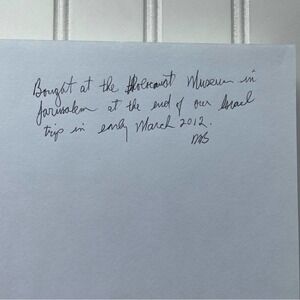 Bought at the Holocaust Museum in
Jerusalem at the end of our Israel
trip in early March 2012.